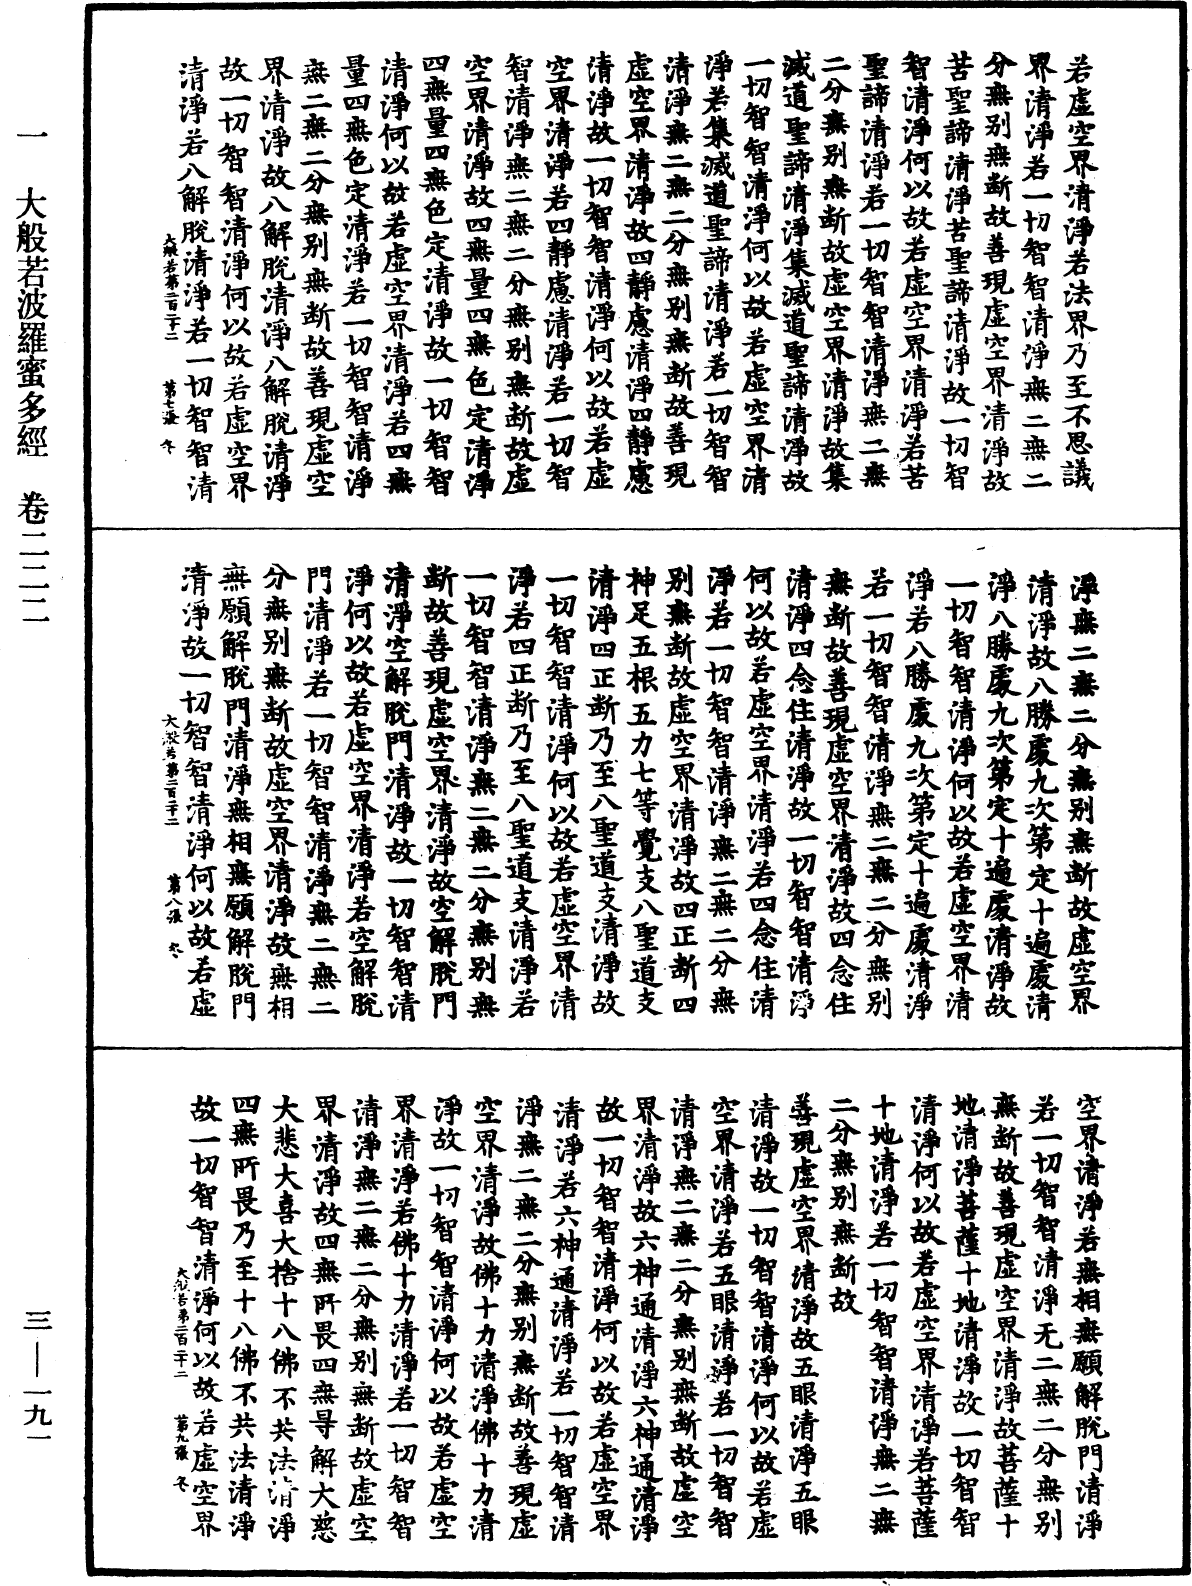 一 大般若波羅蜜多經 卷二二二
三—一九一
若虛空界清淨若法界乃至不思議
界清淨若一切智智清淨無二無二
分無別無斷故善現虛空界清淨故
苦聖諦清淨苦聖諦清淨故一切智
智清淨何以故若虛空界清淨若苦
聖諦清淨若一切智智清淨無二無
二分無別無斷故虛空界清淨故集
滅道聖諦清淨集滅道聖諦清淨故
一切智智清淨何以故若虛空界清
淨若集滅道聖諦清淨若一切智智
清淨無二無二分無別無斷故善現
虛空界清淨故四靜慮清淨四靜慮
清淨故一切智智清淨何以故若虛
空界清淨若四靜慮清淨若一切智
智清淨無二無二分無別無斷故虛
空界清淨故四無量四無色定清淨
四無量四無色定清淨故一切智智
清淨何以故若虛空界清淨若四無
量四無色定清淨若一切智智清淨
無二無二分無別無斷故善現虛空
界清淨故八解脫清淨八解脫清淨
故一切智智清淨何以故若虛空界
清淨若八解脫清淨若一切智智清
大般若第二百二十二 第七張 冬
淨無二無二分無別無斷故虛空界
清淨故八勝處九次第定十遍處清
淨八勝處九次第定十遍處清淨故
一切智智清淨何以故若虛空界清
淨若八勝處九次第定十遍處清淨
若一切智智清淨無二無二分無別
無斷故善現虛空界清淨故四念住
清淨四念住清淨故一切智智清淨
何以故若虛空界清淨若四念住清
淨若一切智智清淨無二無二分無
別無斷故虛空界清淨故四正斷四
神足五根五力七等覺支八聖道支
清淨四正斷乃至八聖道支清淨故
一切智智清淨何以故若虛空界清
淨若四正斷乃至八聖道支清淨若
一切智智清淨無二無二分無別無
斷故善現虛空界清淨故空解脫門
清淨空解脫門清淨故一切智智清
淨何以故若虛空界清淨若空解脫
門清淨若一切智智清淨無二無二
分無別無斷故虛空界清淨故無相
無願解脫門清淨無相無願解脫門
清淨故一切智智清淨何以故若虛
大般若第二百二十二 第八張 冬
空界清淨若無相無願解脫門清淨
若一切智智清淨无二無二分無別
無斷故善現虛空界清淨故菩薩十
地清淨菩薩十地清淨故一切智智
清淨何以故若虛空界清淨若菩薩
十地清淨若一切智智清淨無二無
二分無別無斷故
善現虛空界清淨故五眼清淨五眼
清淨故一切智智清淨何以故若虛
空界清淨若五眼清淨若一切智智
清淨無二無二分無別無斷故虛空
界清淨故六神通清淨六神通清淨
故一切智智清淨何以故若虛空界
清淨若六神通清淨若一切智智清
淨無二無二分無別無斷故善現虛
空界清淨故佛十力清淨佛十力清
淨故一切智智清淨何以故若虛空
界清淨若佛十力清淨若一切智智
清淨無二無二分無別無斷故虛空
界清淨故四無所畏四無㝵解大慈
大悲大喜大捨十八佛不共法清淨
四無所畏乃至十八佛不共法清淨
故一切智智清淨何以故若虛空界
大般若第二百二十二 第九張 冬